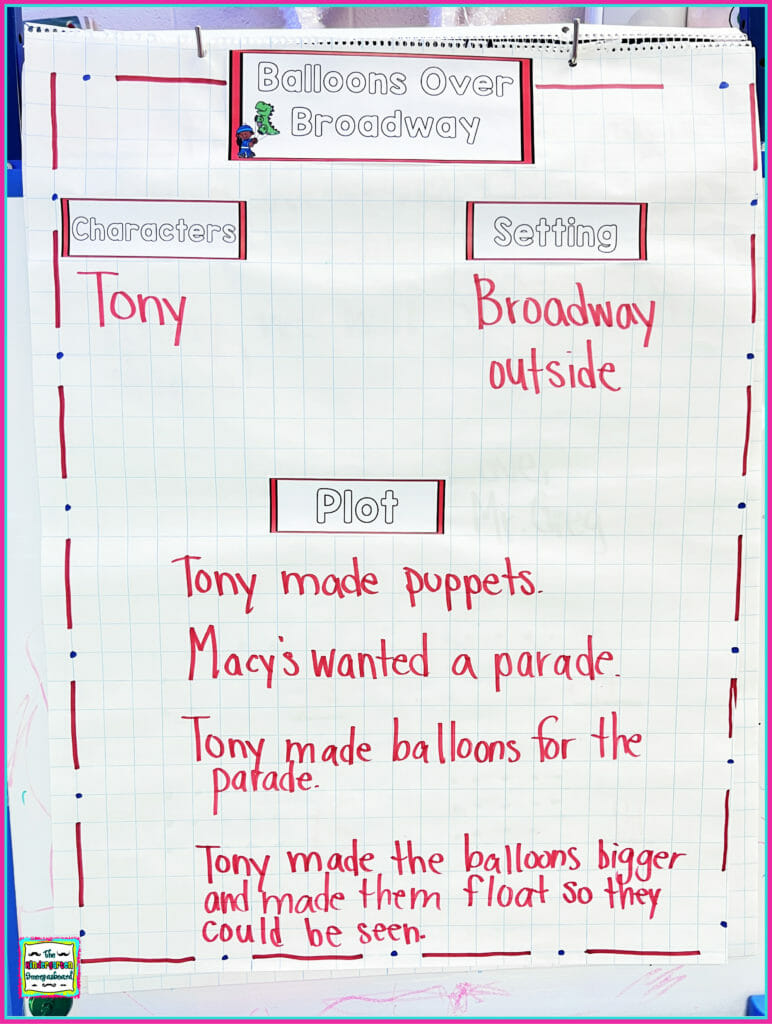 Balloons Over
Broadway
Characters
Setting
Tony
Broadway
outside
Plot
Tony made puppets.
Macy's wanted a parade.
Tony made balloons for the
parade.
Tony made the balloons bigger
and made them float so they
could be seen.
The
Kindergarten
Smorgasboard